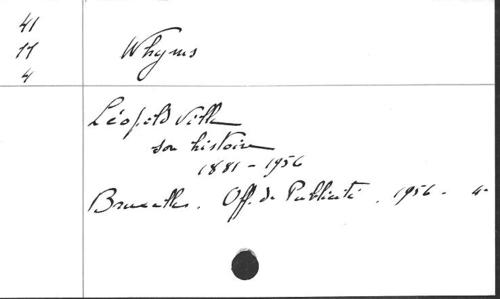 41
11
4
Whyms
Léopoldville
son histoire
1881 - 1956
Bruxelles. Off. de Publicité. 1956 - 4°